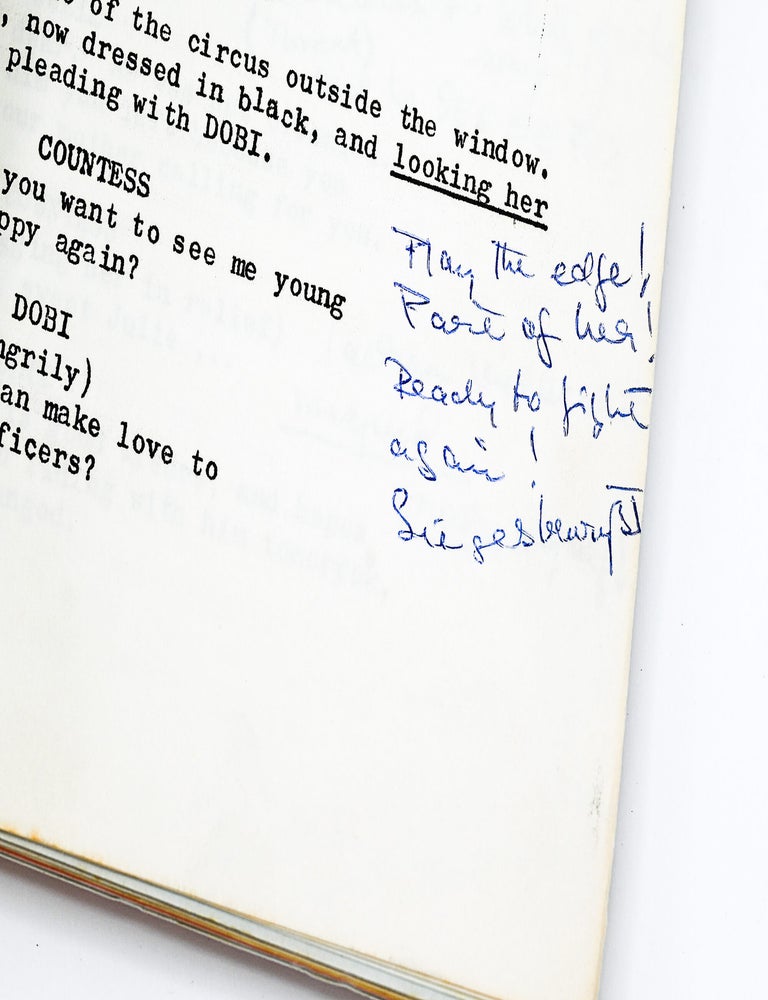 of the circus outside the window.
, now dressed in black, and looking her
pleading with DOBI.
COUNTESS
you want to see me young
ppy again?
DOBI
ngrily)
an make love to
ficers?
Play the edge!
Part of her!
Ready to fight
again!